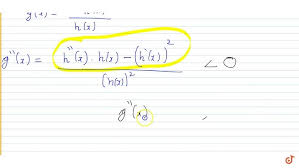 g'(x) =
h(x)
g''(x) = h''(x) . h(x) - (h'(x))² < 0
(h(x))²
g''(x)